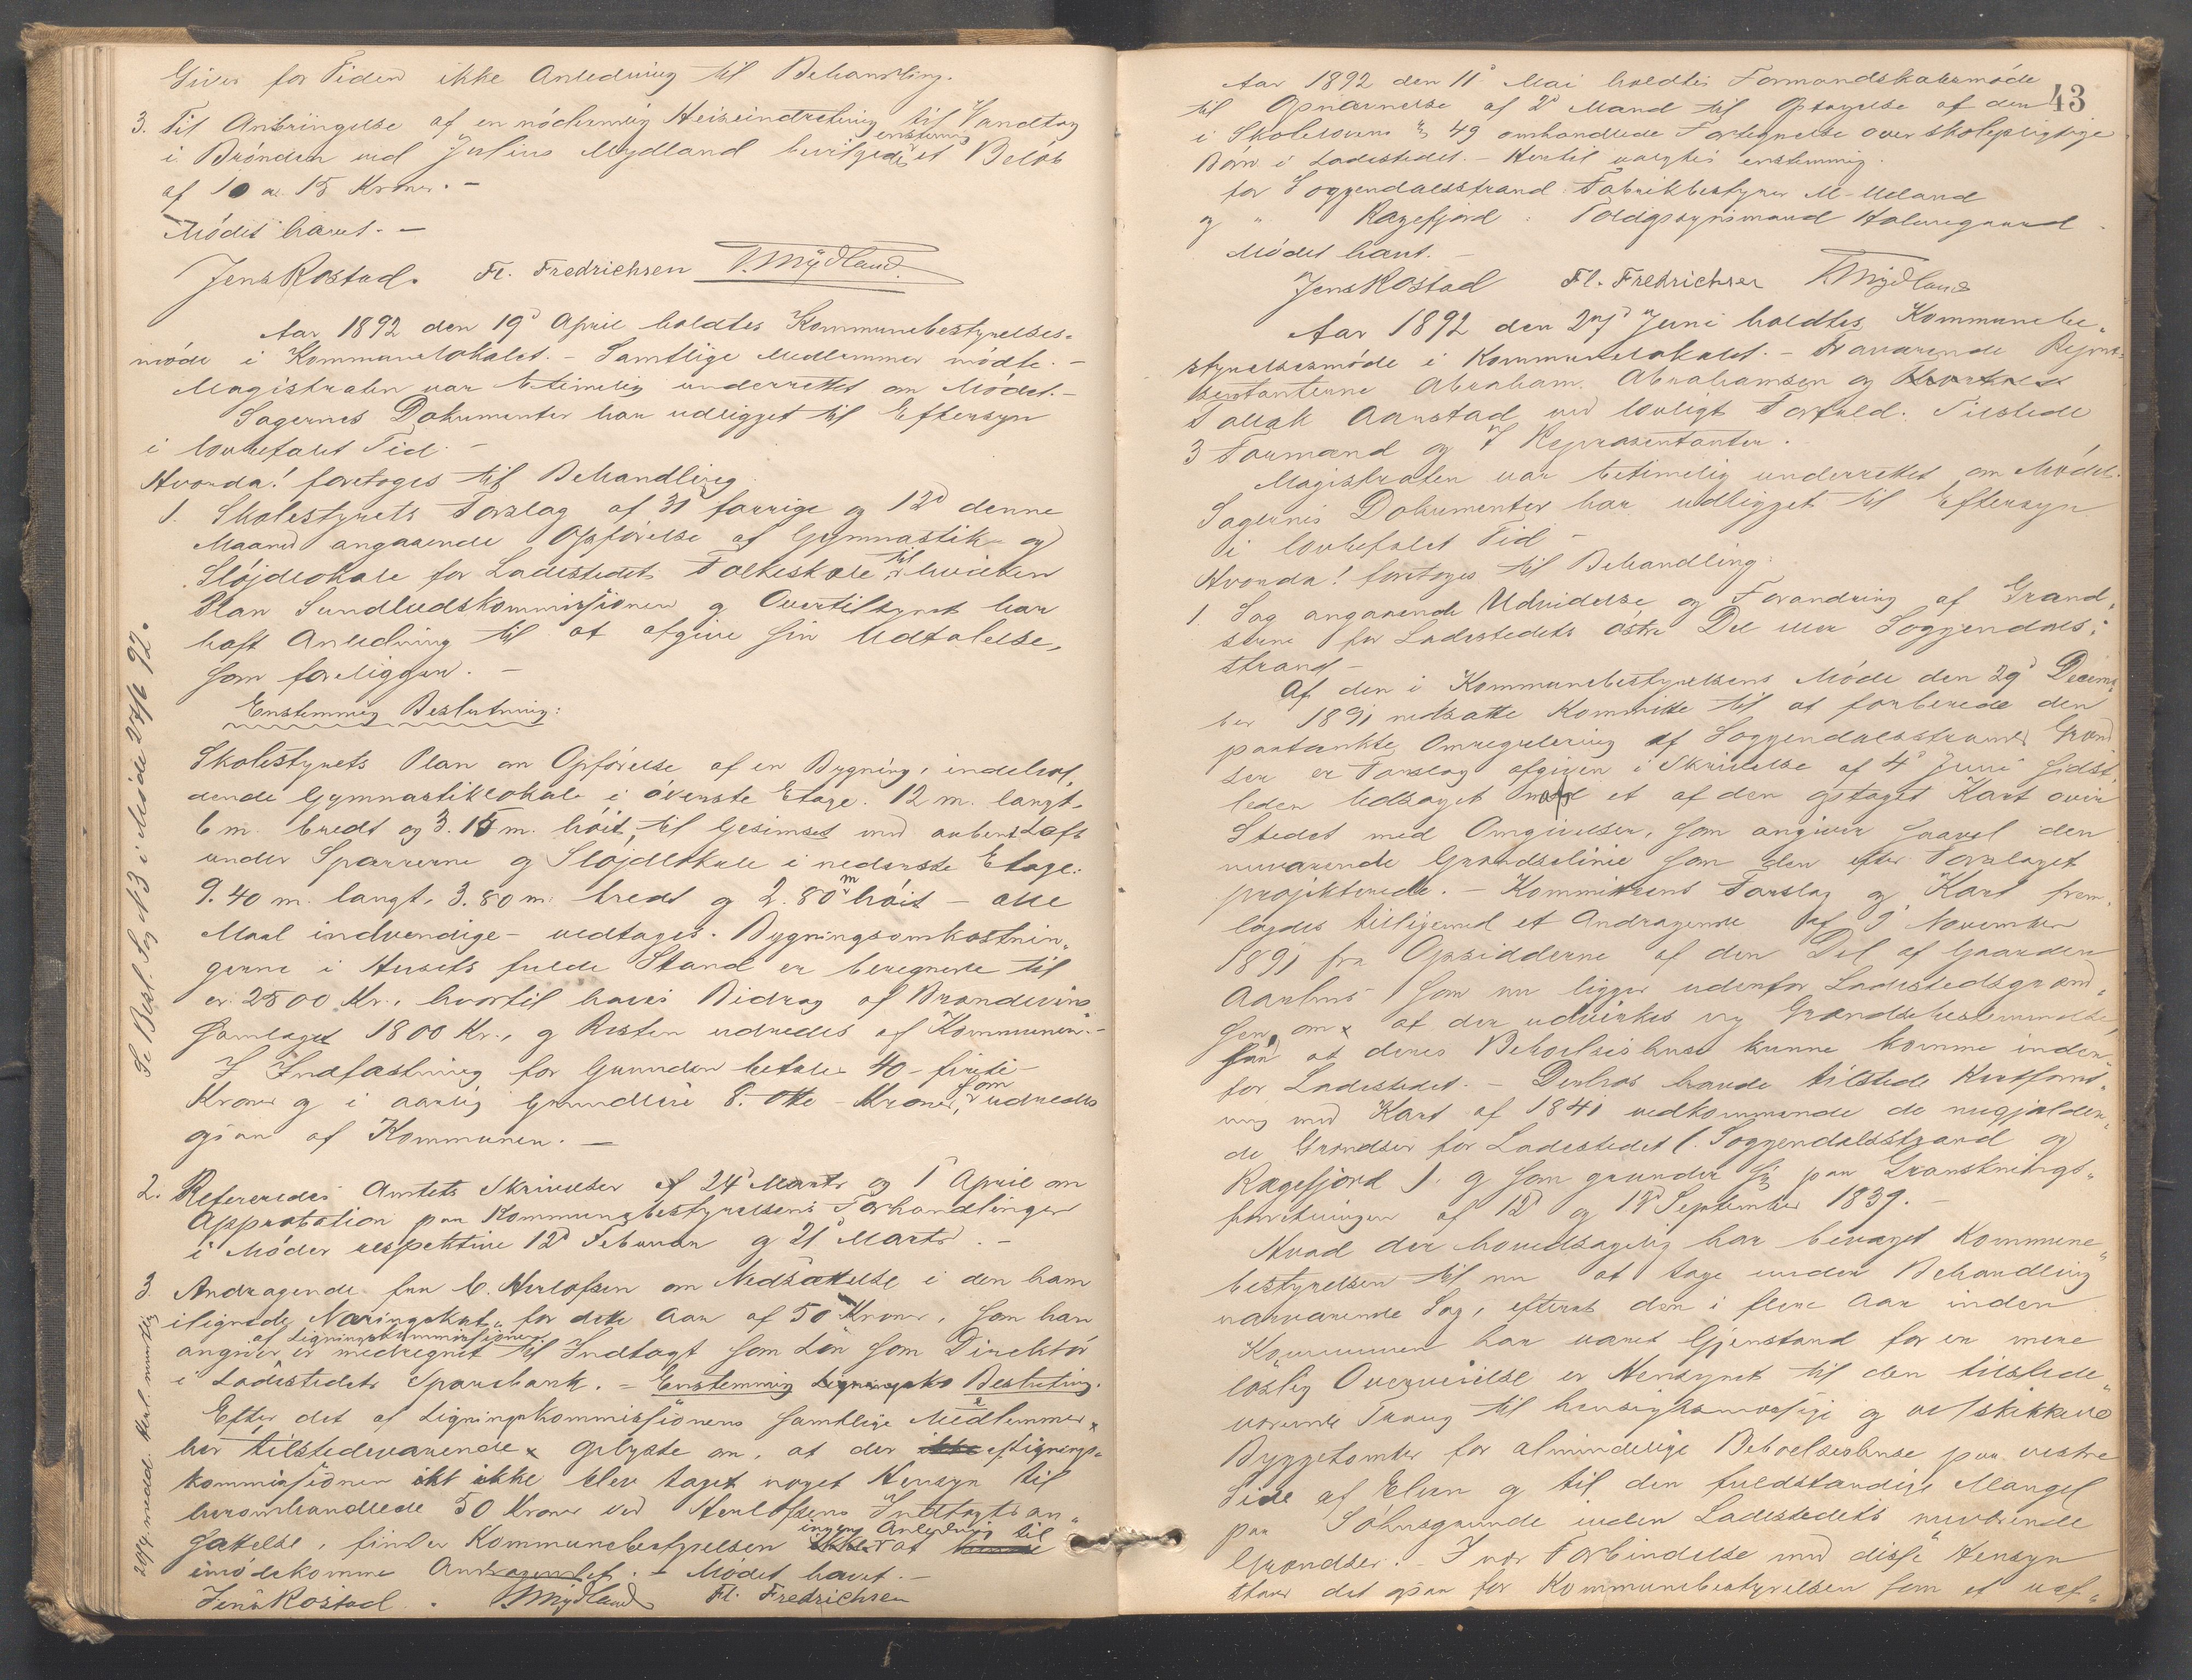 Giver for Tiden ikke Anledning til Behandling.
3. Til Anbringelse af en nødvendig Heiseindretning til Vandtag
i Brønden ved Julius Mydland bevilgedes enstemmig et Beløb
af 10 a 15 Kroner. –
Mødet hævet. –
Jens Rostad. Fr. Fredrichsen T. Mydland.
Aar 1892 den 19d April holdtes Kommunebestyrelses-
møde i Kommunelokalet. – Samtlige Medlemmer mødte. –
Magistraten var betimelig underrettet om Mødet. –
Sagernes Dokumenter har udligget til Eftersyn
i lovbefalet Tid. –
Hvorda! foretoges til Behandling
1. Skolestyrets Forslag af 31 forrige og 12d denne
Maaned angaaende Opførelse af Gymnastik- og
Sløjdlokale for Ladestedets Folkeskole til hvilken
Plan Sundhedskommissionen og Overtilsynet har
haft Anledning til at afgive sin Udtalelse,
som foreligger. –
Enstemmig Beslutning:
Skolestyrets Plan om Opførelse af en Bygning, indehol„
dende Gymnastiklokale i øverste Etage. 12 m. langt,
6 m. bredt og 3.15 m. høit til Gesimset med aabent Loft
under Sparrerne og Sløjdlokale i nederste Etage:
9.40 m. langt, 3.80 m. bredt og 2.80 m høit – alle
Maal indvendige – vedtages. Bygningsomkostnin„
gerne i Husets fulde Stand er beregnede til
ca. 2500 Kr., hvortil haves Bidrag af Brændevins
samlaget 1800 Kr., og Resten udredes af Kommunen. –
I Indfæstning for Grunden betales 40 – firti –
Kroner og i aarlig Grundleie 8. Otte – Kroner, som udredes
ogsaa af Kommunen. –
2. Refereredes Amtets Skrivelser af 24d Marts og 1d April om
Approbation paa Kommunebestyrelsens Forhandlinger
i Møder respektive 12d Februar og 21d Marts. –
3. Andragende fra C. Herlofsen om Nedsættelse i den ham
ilignede Næringsskat for dette Aar af 50 Kroner, som han
angiver er af Ligningskommissionen medregnet til Indtægt som Løn som Direktør
i Ladestedets Sparebank. – Enstemmig Beslutning.
Efter det af Ligningskommissionens samtlige Medlemmer
her tilstedeværende oplyste om, at der af Lignings-
kommissionen ikke blev taget noget Hensyn til
heromhandlede 50 Kroner ved Herlofsens Indtægtsan„
sættelse, finder Kommunebestyrelsen ingen Anledning til at
imødekomme Andragendet. – Mødet hævet. –
Jens Rostad. T. Mydland Fr. Fredrichsen
Se Besl. Sag N3 i Møde 27/6 92.
43
Aar 1892 den 11d Mai holdtes Formandskabsmøde
til Opnævnelse af 2d Mænd til Optagelse af den
i Skolelovens § 49 omhandlede Fortegnelse over skolepligtige
Børn i Ladestedet. – Hertil valgtes enstemmig.
for Soggendalsstrand: Fabrikbestyrer M. Ueland
og „ Rægefjord : Toldopsynsmand Holmegaard.
Mødet hævet. –
Jens Rostad Fr. Fredrichsen T. Mydland
Aar 1892 den 27d Juni holdtes Kommunebe„
styrelsesmøde i Kommunelokalet. – Fraværende Repræ-
sentanterne Abraham Abrahamsen og
Tallak Aarstad ved lovligt Forfald. Tilstede
3 Formænd og 7 Repræsentanter.
Magistraten var betimelig underrettet om Mødet.
Sagernes Dokumenter har udligget til Eftersyn
i lovbefalet Tid –
Hvorda! foretoges til Behandling:
1. Sag angaaende Udvidelse og Forandring af Grænd„
serne for Ladestedets østre Del eller Soggendals„
strand –
Af den i Kommunebestyrelsens Møde den 29d Decem„
ber 1891 nedsatte Kommitte til at forberede den
paatænkte Omregulering af Soggendalsstrands Grænd
ser er Forslag afgiven i Skrivelse af 4d Juni sidst„
leden ledsaget med et af den optaget Kart over
Stedet med Omgivelser, som angiver saavel den
nuværende Grændselinie som den efter Forslaget
projekterede. – Kommitteens Forslag og Kart frem„
lagdes tilligemed et Andragende af 9 November
1891 fra Opsidderne af den Del af Gaarden
Aarhus som nu ligger udenfor Ladestedsgrænd„
sen, om at der udvirkes ny Grændsebestemmelse,
saa at deres Beboelseshuse kunne komme inden„
for Ladestedet. – Derhos havde tilstede Kartforret„
ning med Kart af 1841 vedkommende de nugjælden„
de Grændser for Ladestedet (Soggendalsstrand og
Rægefjord) og som grunder sig paa Gransknings„
forretningen af 12d og 18d September 1839. –
Hvad der hovedsagelig har bevæget Kommune„
bestyrelsen til nu at tage under Behandling
nærværende Sag, efterat den i flere Aar inden
Kommunen har været Gjenstand for en mere
løslig Overveielse er Hensynet til den tilstede„
værende Trang til hensigtsmæssige og velskikkede
Byggetomter for almindelige Beboelseshuse paa vestre
Side af Elven og til den fuldstændige Mangel
paa Søhusgrunde inden Ladestedets nuværende
Grændser. – I nær Forbindelse med disse Hensyn
staar det ogsaa for Kommunebestyrelsen som et uaf„